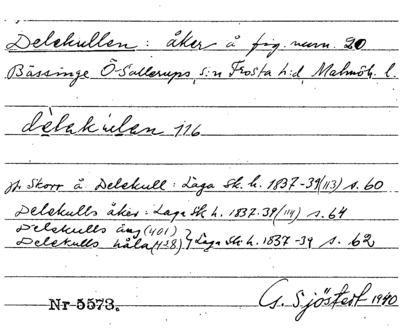 Delekullen: åker å fig. num. 20
Bässinge Ö-Sallerups s:n Frosta h:d, Malmöh. l.
dèlakulan 116
jfr. Skorr å Delekull: Laga Sk. h. 1837-39 (113) s. 60
Delekulls åker: Laga Sk. h. 1837-39 (114) s. 64
Delekulls äng (401)
Delekulls håla (438) } Laga Sk. h. 1837-39 s. 62
Nr 5573.
G. Sjöstedt 1940